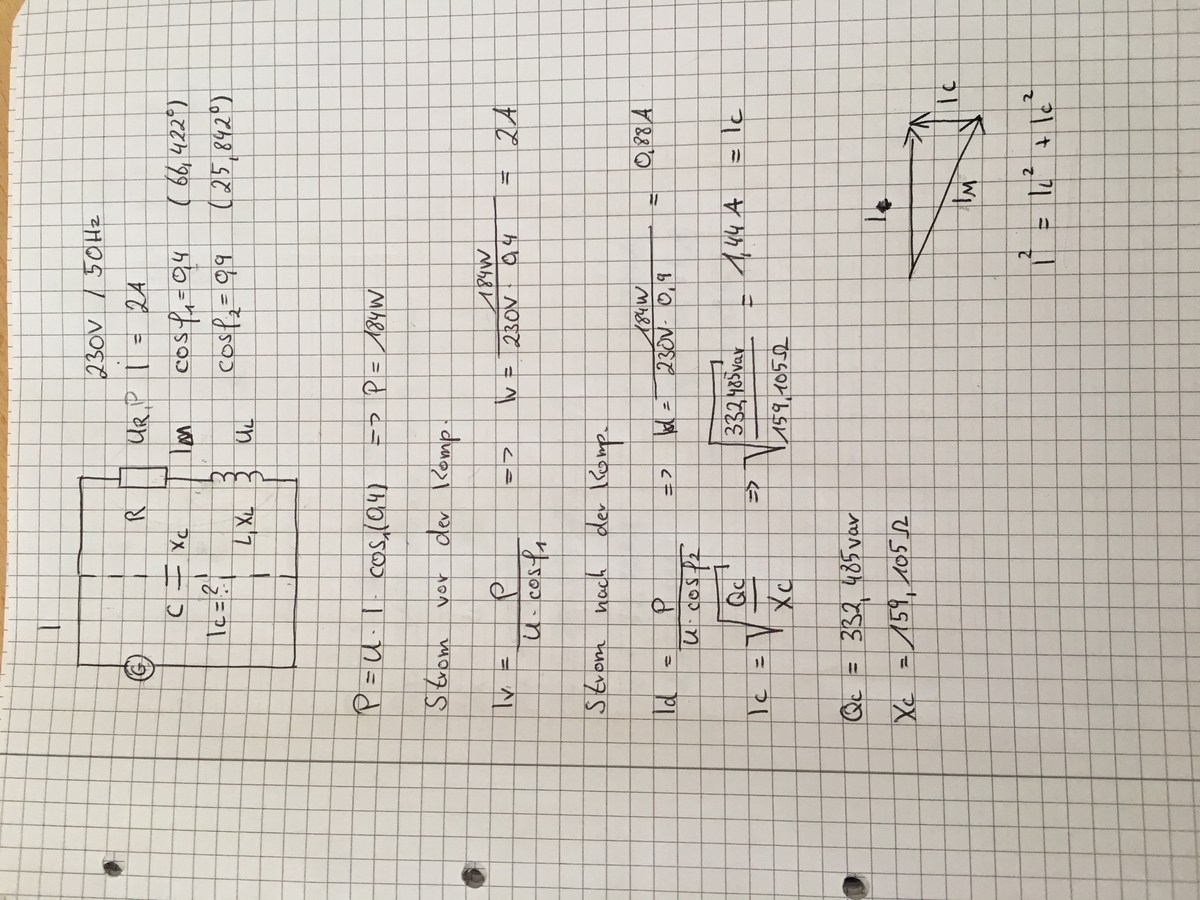 230V / 50Hz
I
R
UR,P
I = 2A
G
C
XC
IM
cosφ₁=0,4 (66,422°)
IC=?
L,XL
UL
cosφ₂=0,9 (25,842°)
P = U · I · cos₁(0,4) => P = 184W
Strom vor der Komp.
Iv = P / U · cosφ₁ => Iv = 184W / 230V · 0,4 = 2A
Strom nach der Komp.
Id = P / U · cosφ₂ => Id = 184W / 230V · 0,9 = 0,88A
IC = √(QC / XC) => √(332,485var / 159,105Ω) = 1,44A = IC
QC = 332,485var
XC = 159,105Ω
I
IM
IC
I² = IL² + IC²